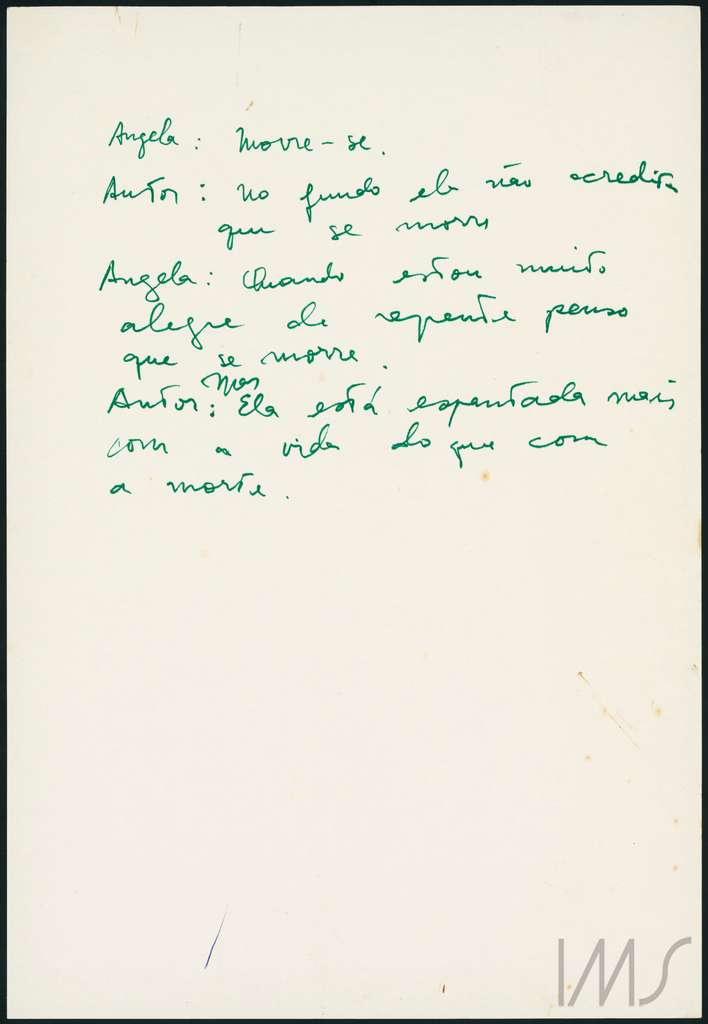 Angela: Morre-se.
Autor: No fundo ela não acredita
que se morre
Angela: Quando estou muito
alegre de repente penso
que se morre.
Mas
Autor: Ela está espantada mais
com a vida do que com
a morte.
IMS